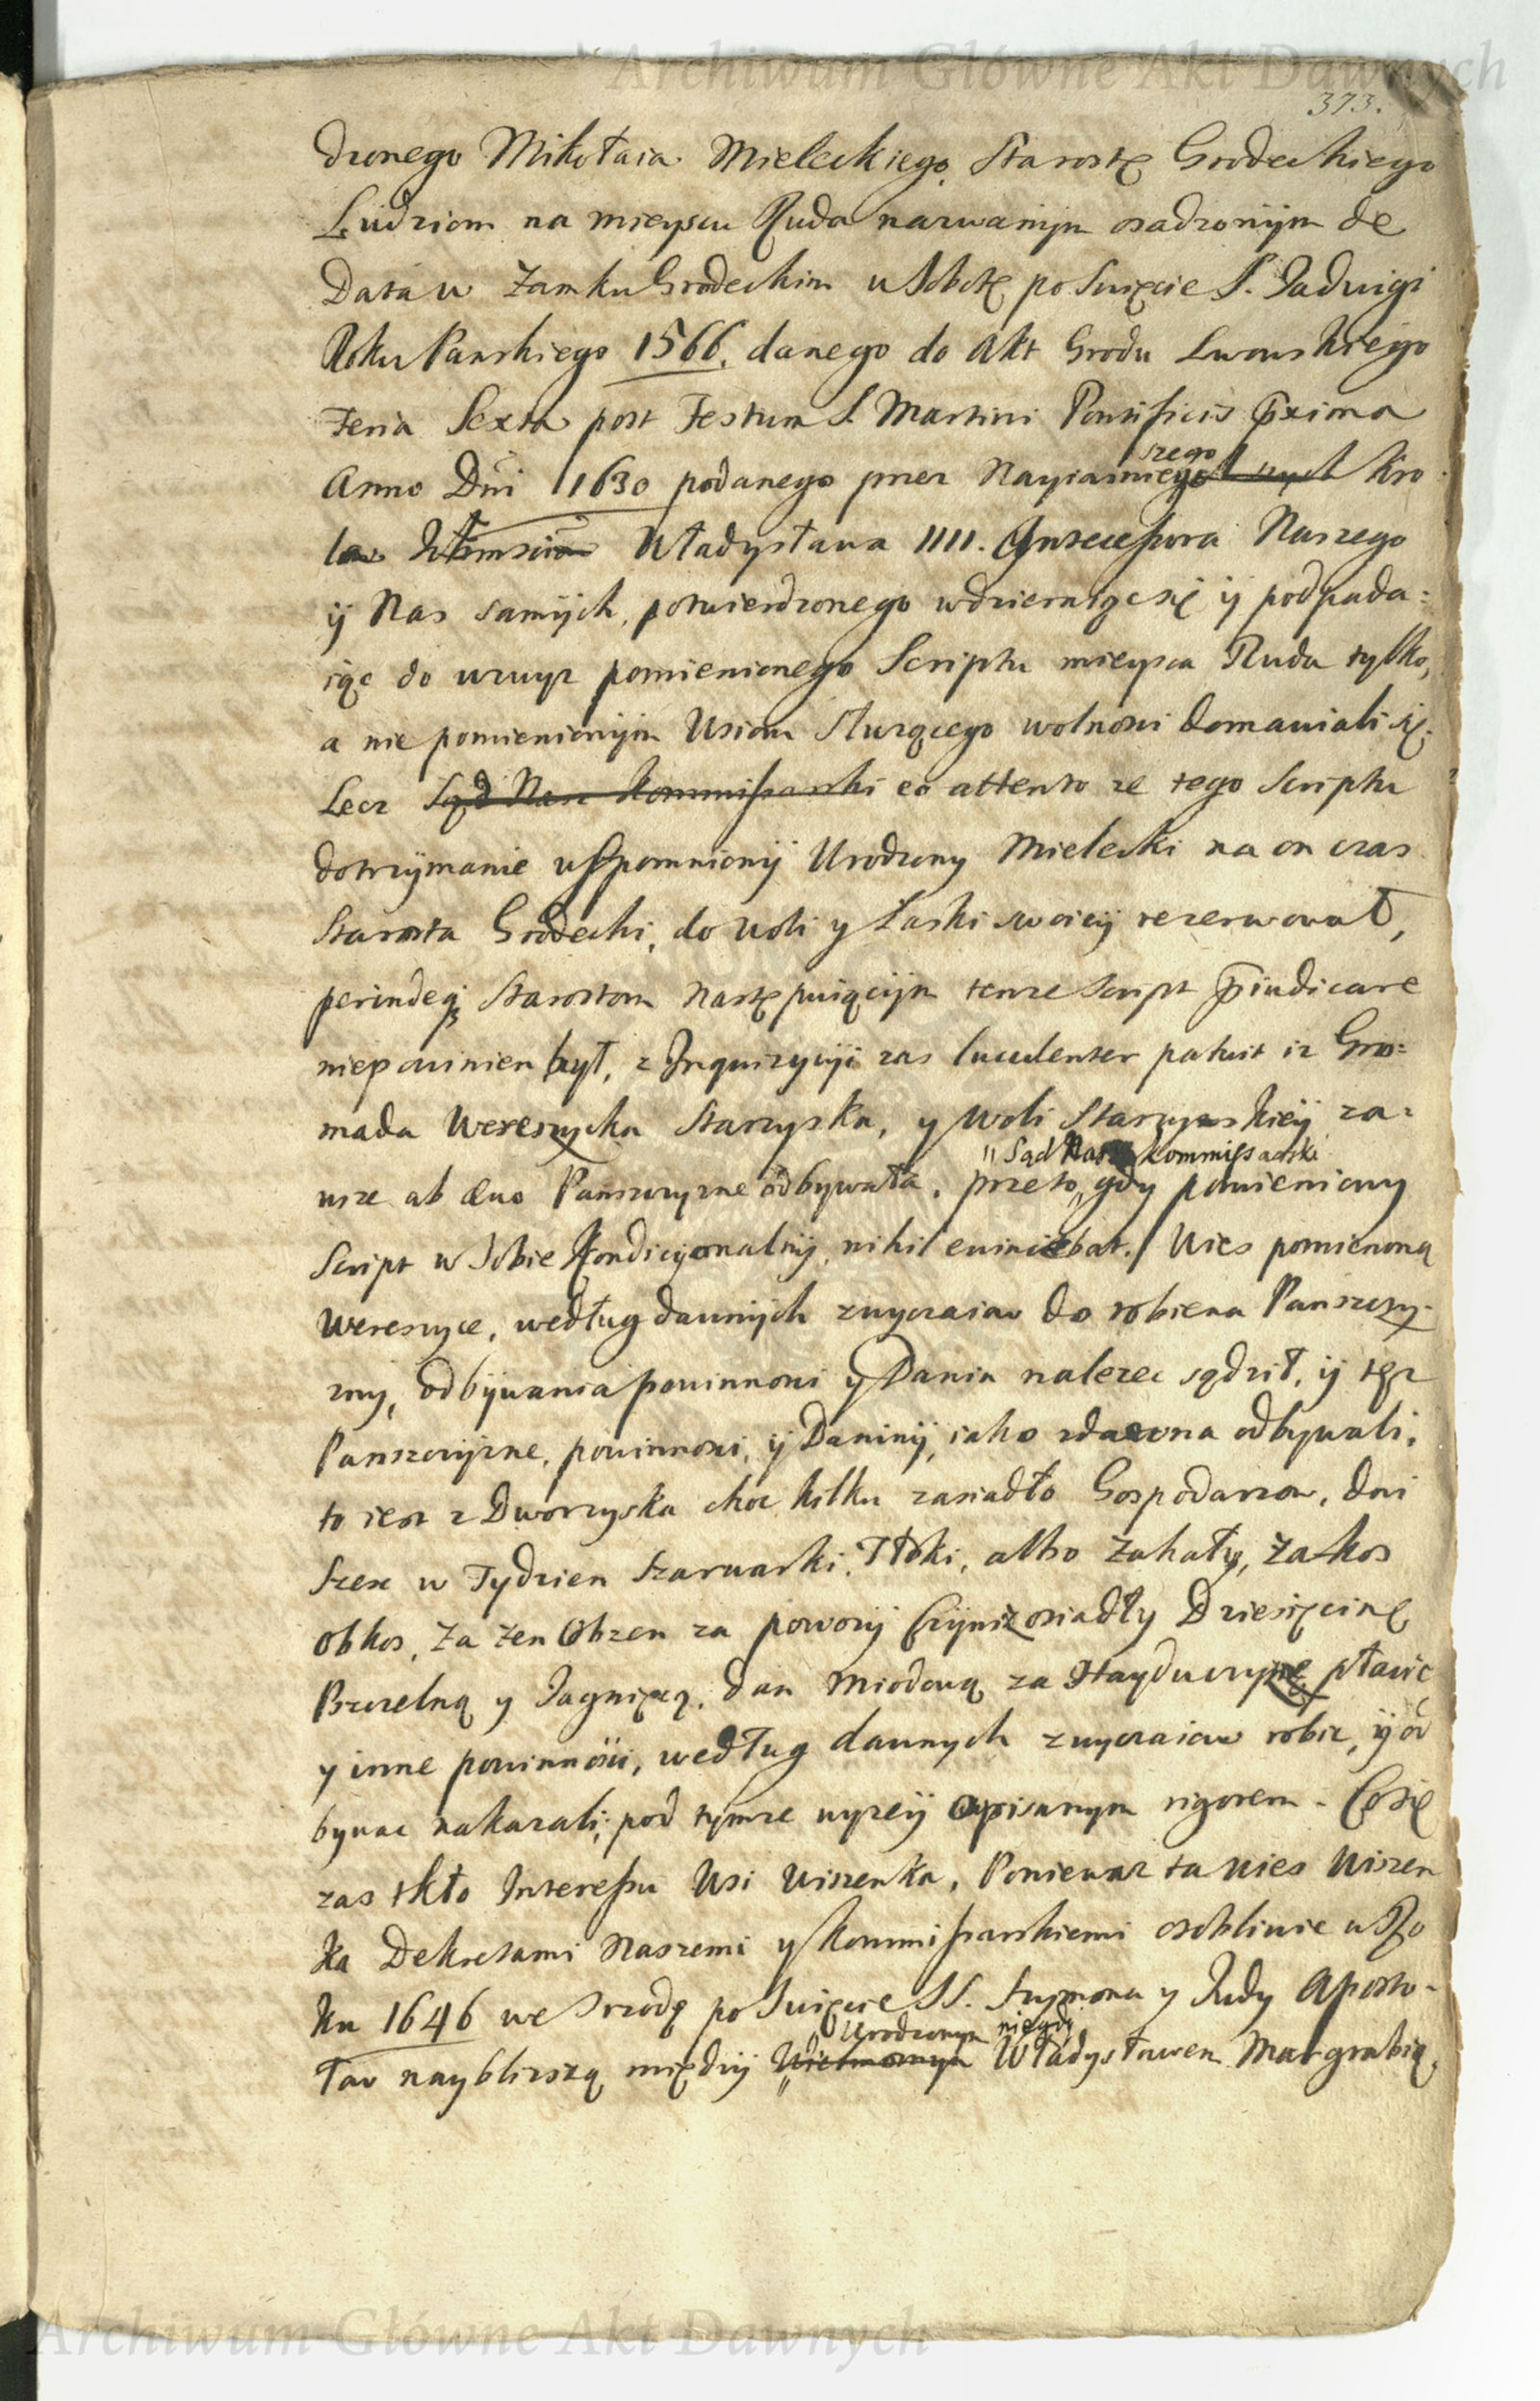 Archiwum Główne Akt Dawnych
373.
dzonego Mikołaia Mieleckiego Starostę Grodeckiego
Ludziom na mieyscu Ruda nazwanÿm osadzonÿm de
Data w Zamku Grodeckim w Sobotę po Swięcie S. Jadwigi
Roku Panskiego 1566. danego do Akt Grodu Lwowskiego
Feria Sexta post Festum S. Martini Pontificis pxima
szego
Anno Dni 1630 podanego przez Nayiasnieyszych Kro
low Władysława IIII. Antecessora Naszego
ÿ Nas samÿch, potwierdzonego wdzieraiąc się ÿ podpada:
iąc do wzwyz pomienionego Scriptu mieysca Ruda tylko,
a nie pomienionÿm Wsiom słuzącego wolnosci domawiali się.
Lecz Sąd Nasz Kommissarski eo attento ze tego Scriptu
dotrzÿmanie wspomnionÿ Urodzony Mielecki na on czas
Starosta Grodecki, do woli y Łaski swoieÿ rezerwował,
perindeq; Starostom następuiącÿm tenze Script piudicare
niepowinien był, z Inquizycÿi zas luculenter patuit iz Gro:
mada Wereszycka Starzyska, y Woli Starzyskieÿ za:
" Sąd Nasz Kommissarski
wsze ab ævo Panszczyzne odbywała, przeto " gdy pomieniony
Script w Sobie Kondicyonalnÿ, nihil evinciebat. Wies pomienioną
Wereszyce, według dawnÿch zwyczaiow do robienia Panszczy:
znÿ, odbÿwania powinnosci y Danin nalezec sądził, ÿ tęz
Panszczÿzne, powinnosci, ÿ Daninÿ, iako zdawna odbywali,
to iest z Dworzyska choc kilku zasiadło Gospodarzow, dni
szesc w Tydzien Szarwarki, Tłoki, albo Zakały, Zakos
obkos, Zazen Obzen za powozÿ Czÿnsz osiadły Dziesięcinę
Bzczelną y Jagnięcą, dan Miodową za Hayduczÿznę płacic
y inne powinnosci, według dawnych zwyczaiow robic, ÿ od
bywac nakazali, pod tÿmze wyzeÿ opisanym rigorem. Co się
zas tkło Interessu Wsi Wiszenka, Poniewaz ta Wies Wiszen
ka Dekretami Naszemi y Kommissarskiemi osobliwie w Ro
ku 1646 we Srzodę po Swięcie SS. Szymona y Judy Aposto-
Urodzonym niegdy
łow naybliższą międzÿ Wielmoznym Władysławem Margrabią,
Archiwum Główne Akt Dawnych